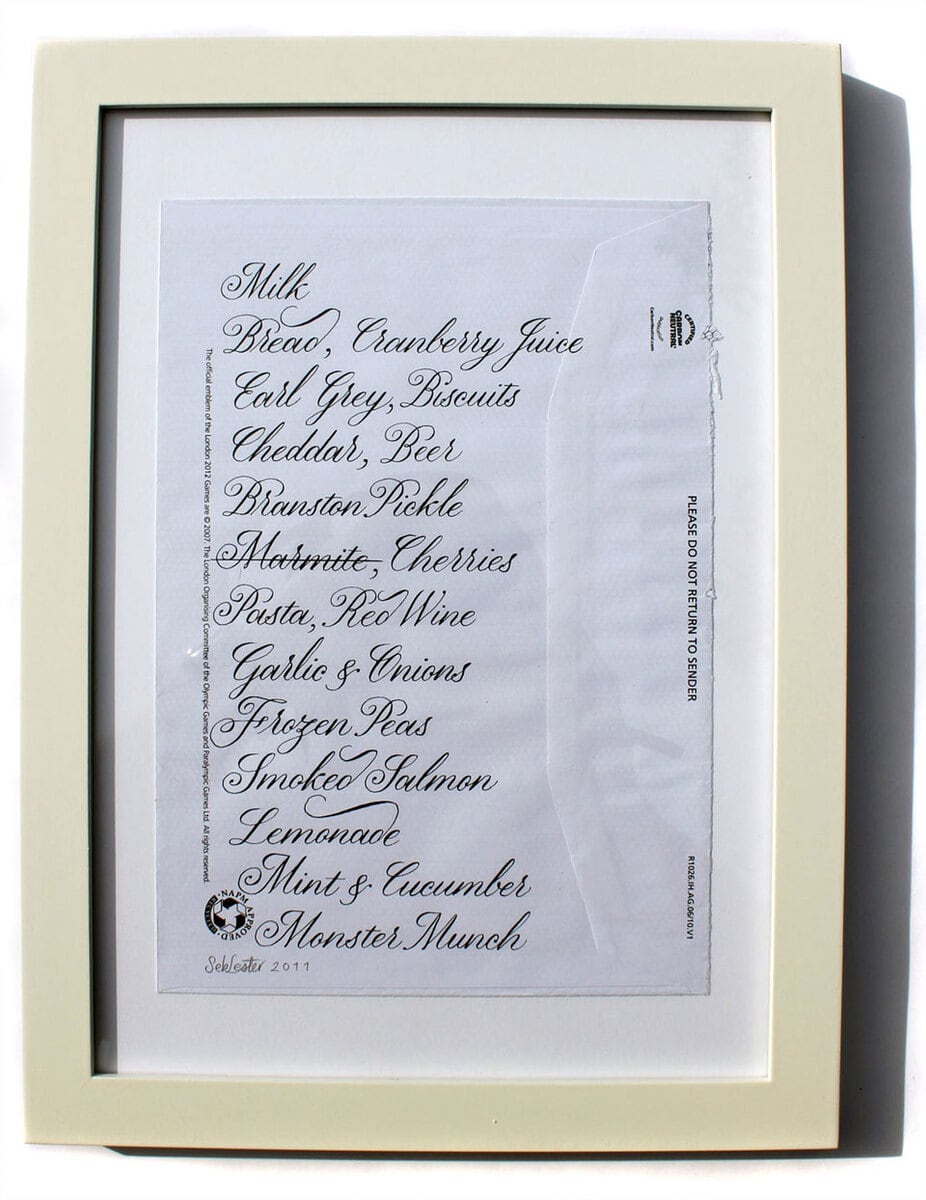 Milk
Bread, Cranberry Juice
Earl Grey, Biscuits
Cheddar, Beer
Branston Pickle
Marmite, Cherries
Pasta, Red Wine
Garlic & Onions
Frozen Peas
Smoked Salmon
Lemonade
Mint & Cucumber
Monster Munch
Seb Lester 2011
The official emblem of the London 2012 Games are © 2007. The London Organising Committee of the Olympic Games and Paralympic Games Ltd. All rights reserved.
NAPM APPROVED
CERTIFIED
CARBON
NEUTRAL
CarbonNeutral.com
PLEASE DO NOT RETURN TO SENDER
R1026.IH.AG.06/10.V1